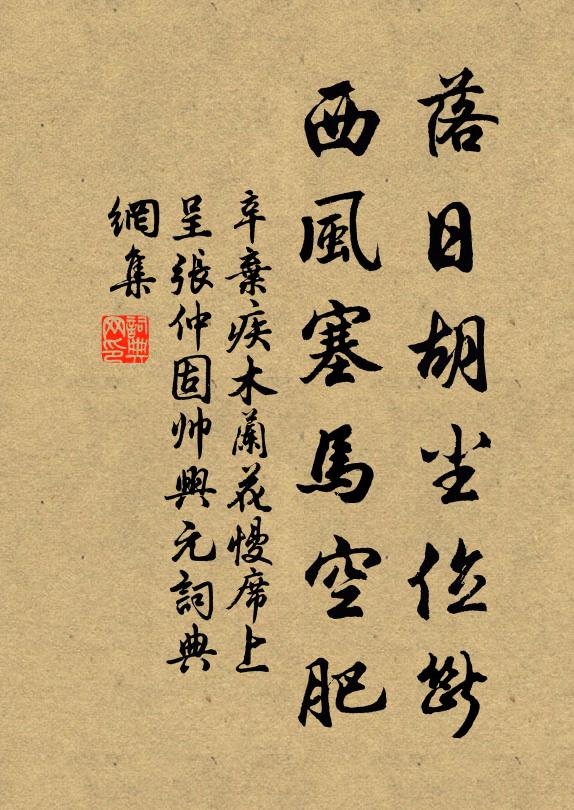 落日胡尘斷
西風塞馬空肥
辛棄疾木蘭花慢席上
呈張仲固帅興元詞典
網集
詞典
网印